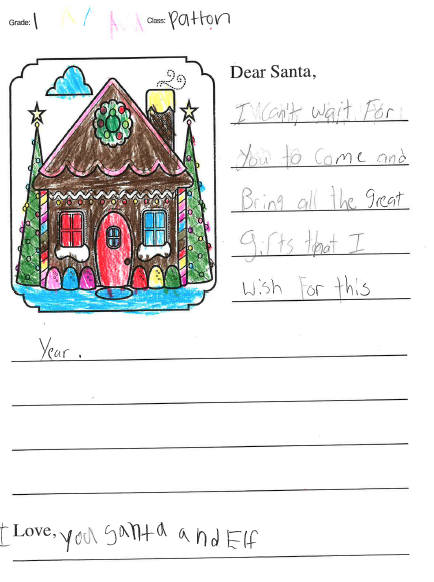 Grade: 1 Class: Patton
Dear Santa,
I Can't wait For
You to Come and
Bring all the great
gifts that I
wish For this
Year.
I Love, you Santa and Elf